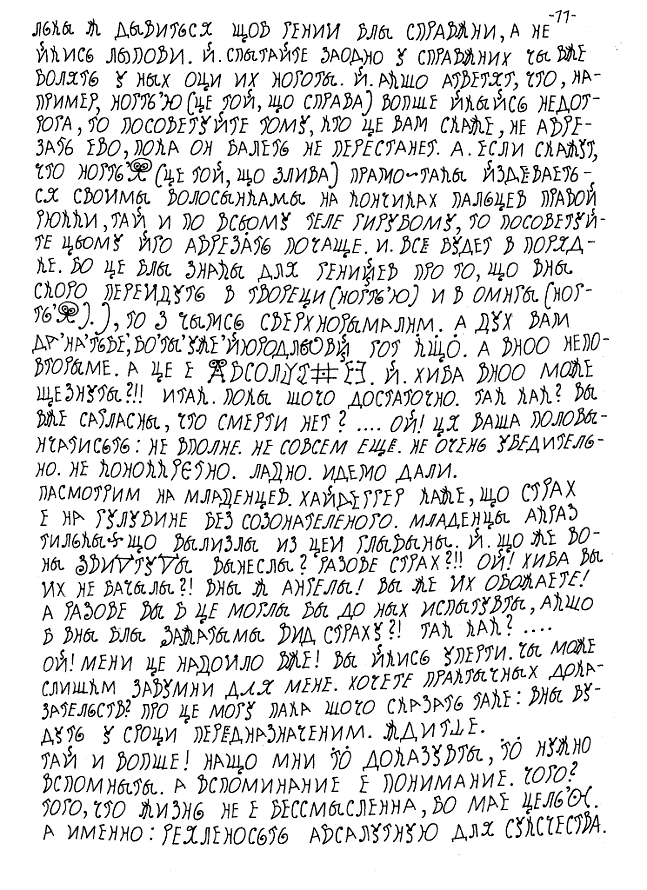 -11-
ЛЬКЫ Ж ДЫВИТЬСЯ ЩОБ ГЕНИИ БЛЫ СПРАВЖНИ, А НЕ
ЙКИСЬ ЛЫПОВИ. Й. СПЫТАЙТЕ ЗАОДНО У СПРАВЖНИХ ЧЫ ВЖЕ
БОЛЯТЬ У НЫХ ОЦИ ИХ НОГОТЫ. Й. АКЩО АТВЕТЯТ, ЧТО, НА-
ПРИМЕР, НОГТЬ'Ю (ЦЕ ТОЙ, ЩО СПРАВА) ВОПШЕ ЙКЫЙСЬ НЕДОТ-
РОГА, ТО ПОСОВЕТУЙТЕ ТОМУ, КТО ЦЕ ВАМ СКАЖЕ, НЕ АБРЕ-
ЗАТЬ ЕВО, ПОКА ОН БАЛЕТЬ НЕ ПЕРЕСТАНЕТ. А. ЕСЛИ СКАЖУТ,
ЧТО НОГТЬ' (ЦЕ ТОЙ, ЩО ЗЛИВА) ПРАМО-ТАКЫ ИЗДЕВАЕТЬ-
СЯ СВОИМЫ ВОЛОСЫНКАМЫ НА КОНЧИКАХ ПАЛЬЦЕВ ПРАВОЙ
РЮККИ, ТАЙ И ПО ВСЬОМУ ТЕЛЕ ГИРУБОМУ, ТО ПОСОВЕТУЙ-
ТЕ ЦЬОМУ ЙГО АБРЕЗАТЬ ПОЧАЩЕ. И. ВСЕ БУДЕТ В ПОРЯД-
КЕ. БО ЦЕ БЛЫ ЗНАКЫ ДЛЯ ГЕНИЙЕВ ПРО ТО, ЩО ВНЫ
СКОРО ПЕРЕИДУТЬ В ТВОРЕЦИ (НОГТЬ'Ю) И В ОМНГЫ (НОГ-
ТЬ').), ТО З ЧЫЛИСЬ СВЕРХНОРЫМАЛНМ. А ДУХ ВАМ
НА ТЬБЕ, БО ТЫ УЖЕ ЙЮРОДЛЫОВЙ ТОТ КЩО. А ВНОО НЕПО-
ВТОРЫМЕ. А ЦЕ Е АБСОЛЮТ#ЕЗ. Й. ХИБА ВНОО МОЖЕ
ЩЕЗНУТЫ?!! ИТАК. ПОКЫ ЩОЧО ДОСТАТОЧНО. ТАК КАК? ВЫ
ВЖЕ САГЛАСНЫ, ЧТО СМЕРТИ НЕТ? .... ОЙ! ЦЯ ВАША ПОЛОВЫ-
НЧАТИСЬТЬ: НЕ ВПОЛНЕ. НЕ СОВСЕМ ЕЩЕ. НЕ ОЧЕНЬ УБЕДИТЕЛЬ-
НО. НЕ КОНОККРЕТНО. ЛАДНО. ИДЕМО ДАЛИ.
ПАСМОТРИМ НА МЛАДЕНЦЕВ. ХАЙДЕГГЕР КАЖЕ, ЩО СТРАХ
Е НА ГУЛУБИНЕ БЕЗ СОЗОНАТЕЛЕНОГО. МЛАДЕНЦЫ АКРАЗ
ТИЛЬКЫ ЩО ВЫЛИЗЛЫ ИЗ ЦЕИ ГЛЫБЫНЫ. Й. ЩО ЖЕ ВО-
НЫ ЗВИДТУДЫ ВЫНЕСЛЫ? РАЗОВЕ СТРАХ?!! ОЙ! ХИБА ВЫ
ИХ НЕ БАЧЫЛЫ?! ВНЫ Ж АНГЕЛЫ! ВЫ ЖЕ ИХ ОБОЖАЕТЕ!
А РАЗОВЕ ВЫ Б ЦЕ МОГЛЫ БЫ ДО НЫХ ИСПЫТУВТЫ, АКЩО
Б ВНЫ БЛЫ ЗАКАТЫМЫ ВИД СТРАХУ?! ТАК КАК? ....
ОЙ! МЕНИ ЦЕ НАДОИЛО ВЖЕ! ВЫ ЙКИСЬ УПЕРТИ. ЧЫ МОЖЕ
СЛИШКМ ЗАВУМНИ ДЛЯ МЕНЕ. ХОЧЕТЕ ПРАКТЫЧНЫХ ДОКА-
ЗАТЕЛЬСТВ? ПРО ЦЕ МОГУ ПАКА ЩОЧО СКАЗАТЬ ТАКЕ: ВНЫ БУ-
ДУТЬ У СРОЦИ ПЕРЕДНАЗНАЧЕНИМ. ЖДИТЬЕ.
ТАЙ И ВОПШЕ! НАЩО МНИ ТО ДОКАЗУВТЫ, ТО НУЖНО
ВСПОМНЫТЫ. А ВСПОМИНАНИЕ Е ПОНИМАНИЕ. ЧОГО?
ТОГО, ЧТО ЖИЗНЬ НЕ Е БЕССМЫСЛЕННА, БО МАЕ ЦЕЛЬ'.
А ИМЕННО: РЕЯЛЕНОСЬТЬ АБСАЛУТНУЮ ДЛЯ СУЙСЧЕСТВА.